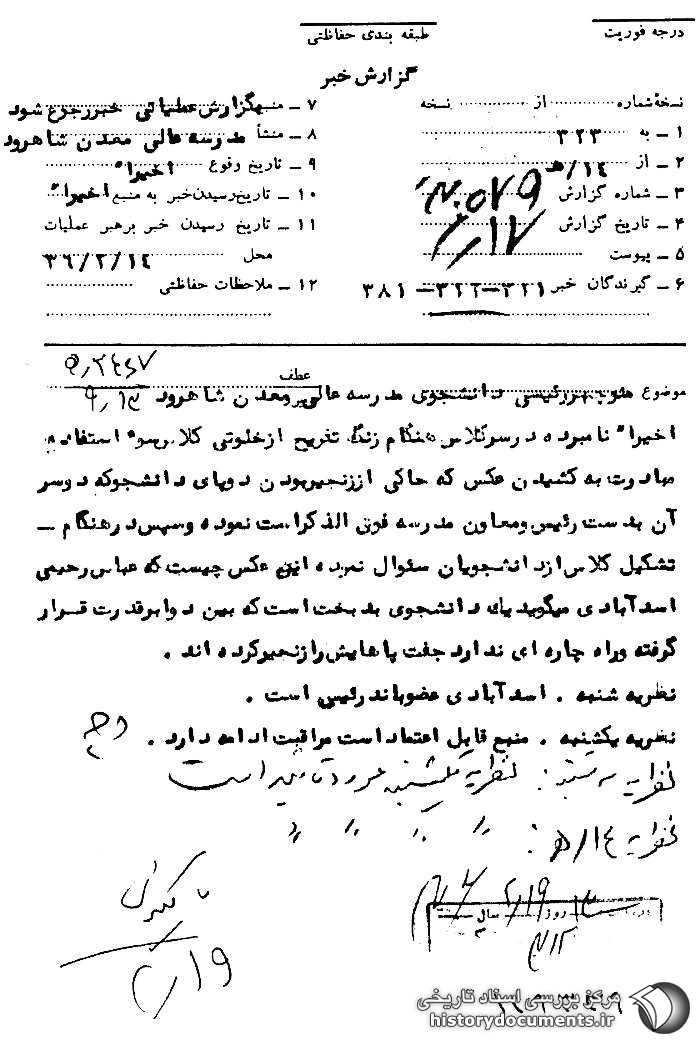 درجه فوریت
طبقه بندی حفاظتی
گزارش خبر
نسخهٔ شماره از نسخه
۱ ــ به ۳۲۳
۲ ــ از ۱۴/هـ
۳ ــ شماره گزارش
۴ ــ تاریخ گزارش ۲/۱۷
۵ ــ پیوست
۶ ــ گیرندگان خبر ۳۲۱ــ۳۲۲ــ۳۸۱
۷ ــ منبع بگزارش عملیاتی خبر رجوع شود
۸ ــ منشأ مدرسه عالی معدن شاهرود
۹ ــ تاریخ وقوع اخیرا"
۱۰ ــ تاریخ رسیدن خبر به منبع اخیرا"
۱۱ ــ تاریخ رسیدن خبر برهبر عملیات
محل ۳۶/۲/۱۴
۱۲ ــ ملاحظات حفاظتی
عطف
موضوع منوچهر رئیسی دانشجوی مدرسه عالی معدن شاهرود
اخیرا" نامبرده در سر کلاس هنگام زنگ تفریح از خلوتی کلاس سو" استفاده
مبادرت به کشیدن عکس که حاکی از زنجیر بودن دوپای دانشجو که دوسر
آن بدست رئیس ومعاون مدرسه فوق الذکر است نموده وسپس در هنگام ــ
تشکیل کلاس از دانشجویان سئوال نموده این عکس چیست که عباس رحیمی
اسدآبادی میگوید یک دانشجوی بدبخت است که بین دو ابرقدرت قرار
گرفته وراه چاره ای ندارد جفت پاهایش را زنجیر کرده اند .
نظریه شنبه . اسدآبادی عضو باند رئیس است .
نظریه یکشنبه . منبع قابل اعتماد است مراقبت ادامه دارد .
نظریه سه شنبه : نظریه یکشنبه مورد تأیید است
نظریه ۱۴/هـ : " " " "
۲/۱۹
روز سال
مرکز بررسی اسناد تاریخی
historydocuments.ir